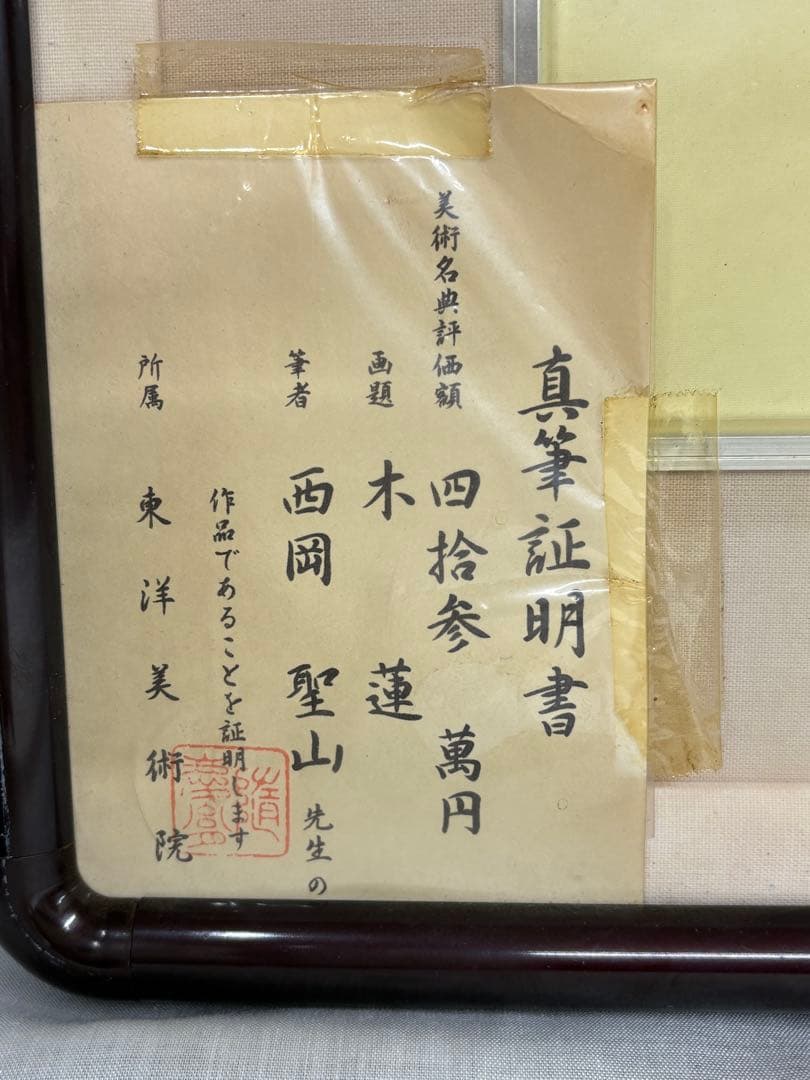 真筆証明書
美術名典評価額 四拾参萬円
画題 木蓮
筆者 西岡聖山先生の
作品であることを証明します
所属 東洋美術院